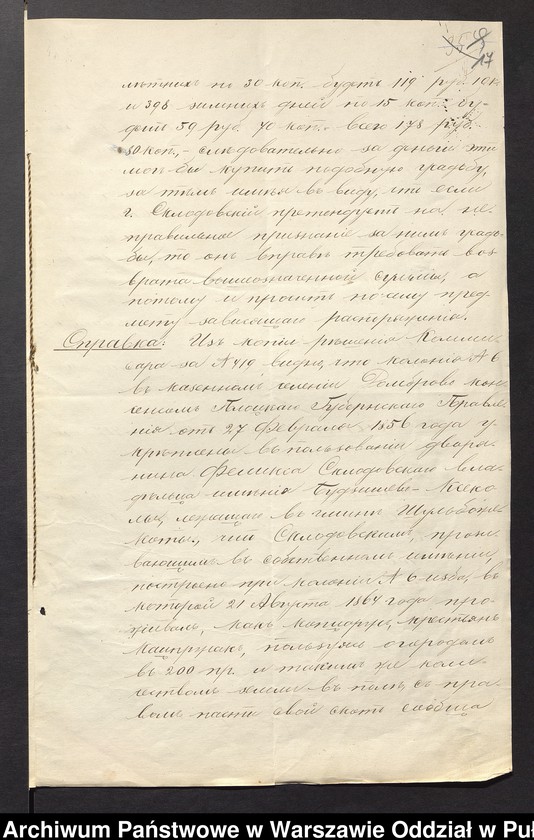 17
лѣтнихъ по 30 коп. будетъ 119 руб. 10 к
и 398 зимнихъ дней по 15 коп. бу-
детъ 59 руб. 70 коп. всего 178 руб.
80 коп., – слѣдовательно за деньги эти
могъ бы купить подобную усадьбу,
за тѣмъ имѣя въ виду, что если
г. Склодовскій претендуетъ на не-
правильное признаніе за нимъ усадь-
бы, то онъ вправѣ требовать воз
врата вышеозначенной суммы, а
потому и проситъ по сему пред-
мету зависящаго распоряженія.
Справка: Изъ копіи рѣшенія Комми-
сара за № 419 видно, что колонія № 6
въ казенномъ селеніи Доморово
Плоцкаго Губернскаго Правле-
нія отъ 27 Февраля 1856 года у-
крѣплены въ пользованіи дворя-
нина Феликса Склодовскаго вла-
дѣльца имѣнія Будзишево
лежащаго въ гминѣ
что Склодовскимъ, прожи
вающимъ въ собственномъ имѣніи,
построено при колоніи № 6 изба, въ
которой 21 Августа 1864 года про-
живалъ, какъ крестьянъ
пользуясь огородомъ
въ 200 пр. и такимъ же коли-
чествомъ земли въ полѣ, съ пра-
вомъ пасти свой скотъ сообща
Archiwum Państwowe w Warszawie Oddział w Puł